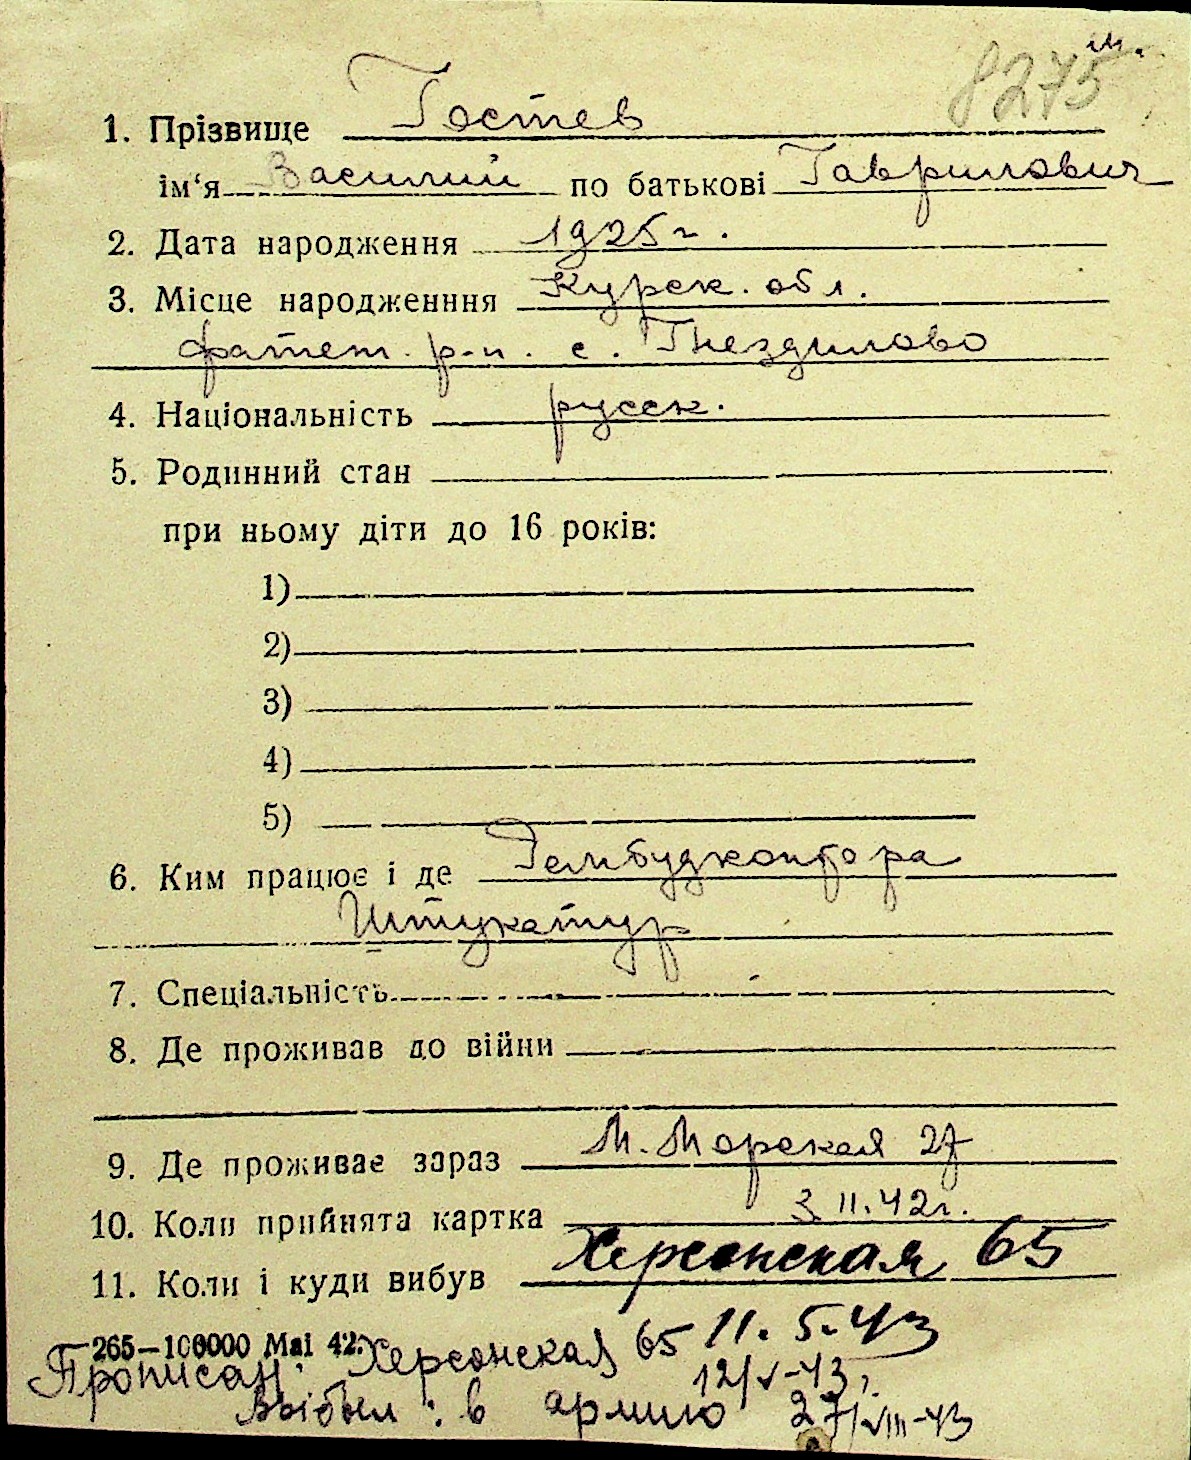 м.
8275
1. Прізвище Гостев
ім‘я Василий по батькові Гаврилович
2. Дата народження 1925 г.
3. Місце народженння Курск. обл.
фатеж. р-н. с. Гнездилово
4. Національність русск.
5. Родинний стан
при ньому діти до 16 років:
1)
2)
3)
4)
5)
6. Ким працює і де Рембудконтора
Штукатур
7. Спеціальність
8. Де проживав до війни
9. Де проживає зараз М. Морская 27
10. Коли прийнята картка 3 II. 42 г.
11. Коли і куди вибув Херсонская 65
11. 5. 43
265—100000 Mai 42.
Прописан: Херсонская 65 12/V-43 г.
Выбыл: в армию 27/VIII-43